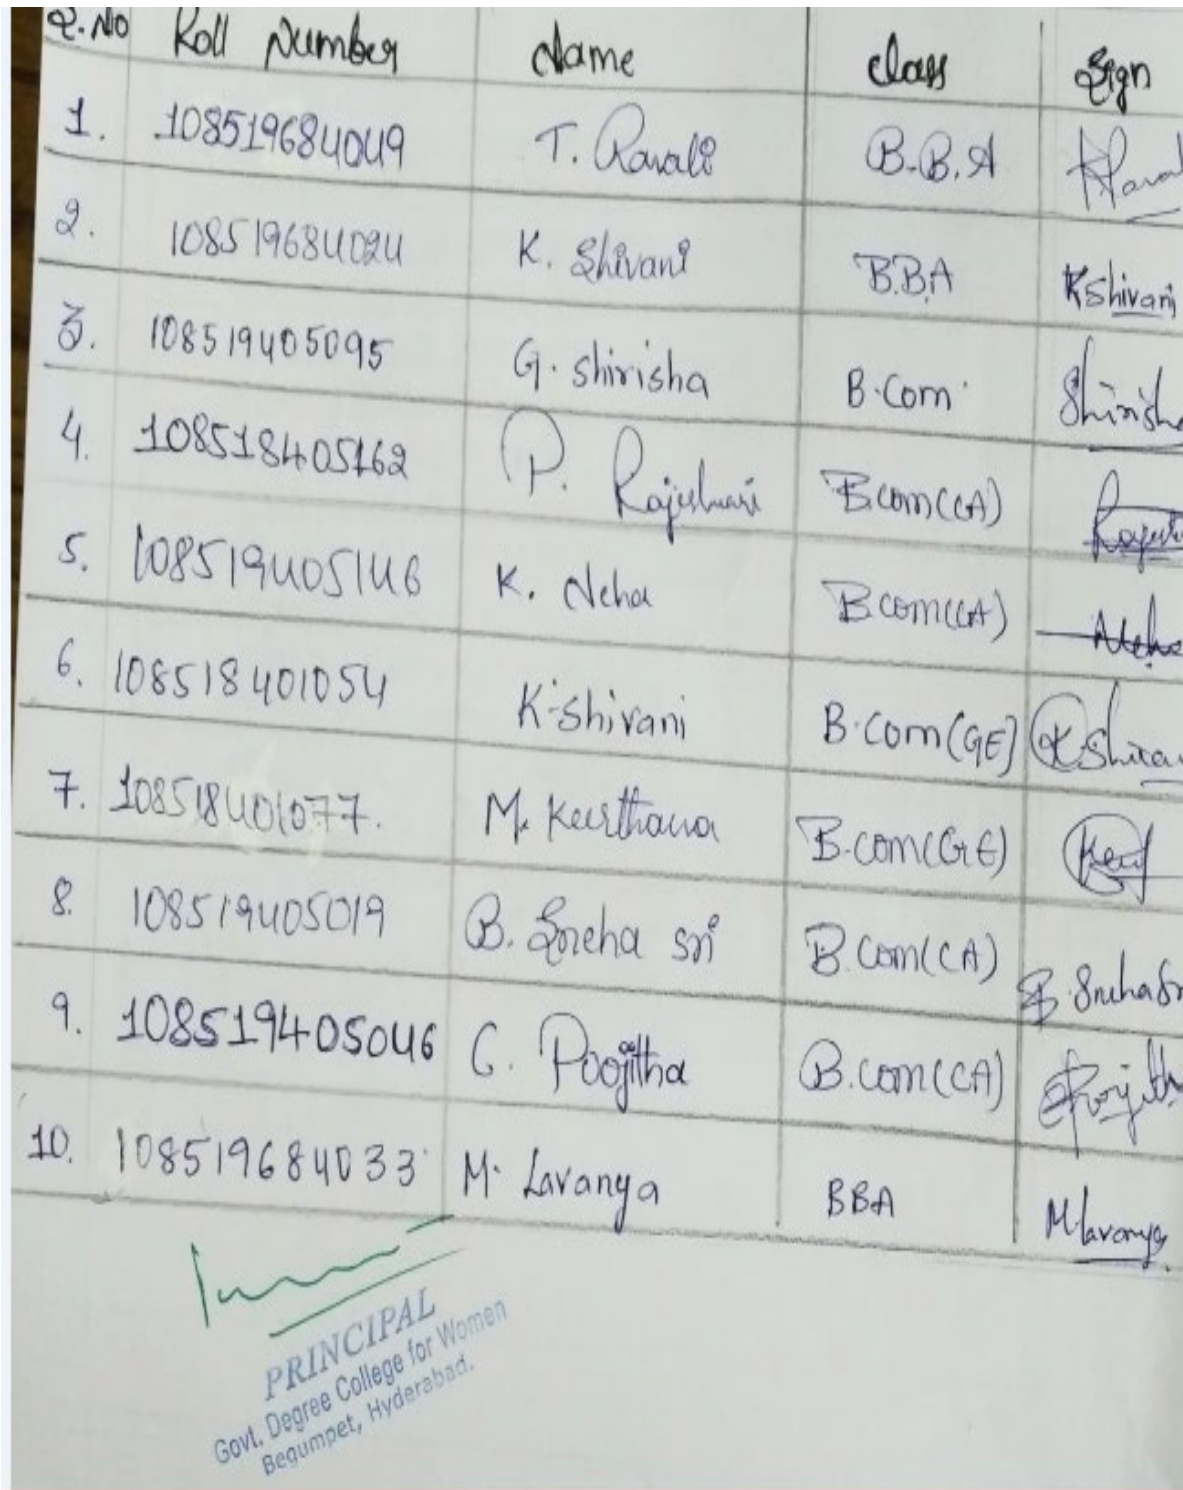 S.No Roll Number Name Class Sign
1. 108519684049 T. Ravali B.B.A Raval
2. 108519684024 K. Shivani B.B.A K Shivani
3. 108519405095 G. Shirisha B.Com Shirisha
4. 108518405162 P. Rajeshwari B.com(CA)
5. 108519405146 K. Neha B.com(CA) Neha
6. 108518401054 K. Shivani B.Com(GE) K Shivan
7. 108518401077. M. Keerthana B.com(GE) Keert
8. 108519405019 B. Sneha sri B.Com(CA) B. Sneha Sr
9. 108519405046 G. Poojitha B.com(CA) Poojith
10. 108519684033 M. Lavanya BBA M Lavanya
PRINCIPAL
Govt. Degree College for Women
Begumpet, Hyderabad.